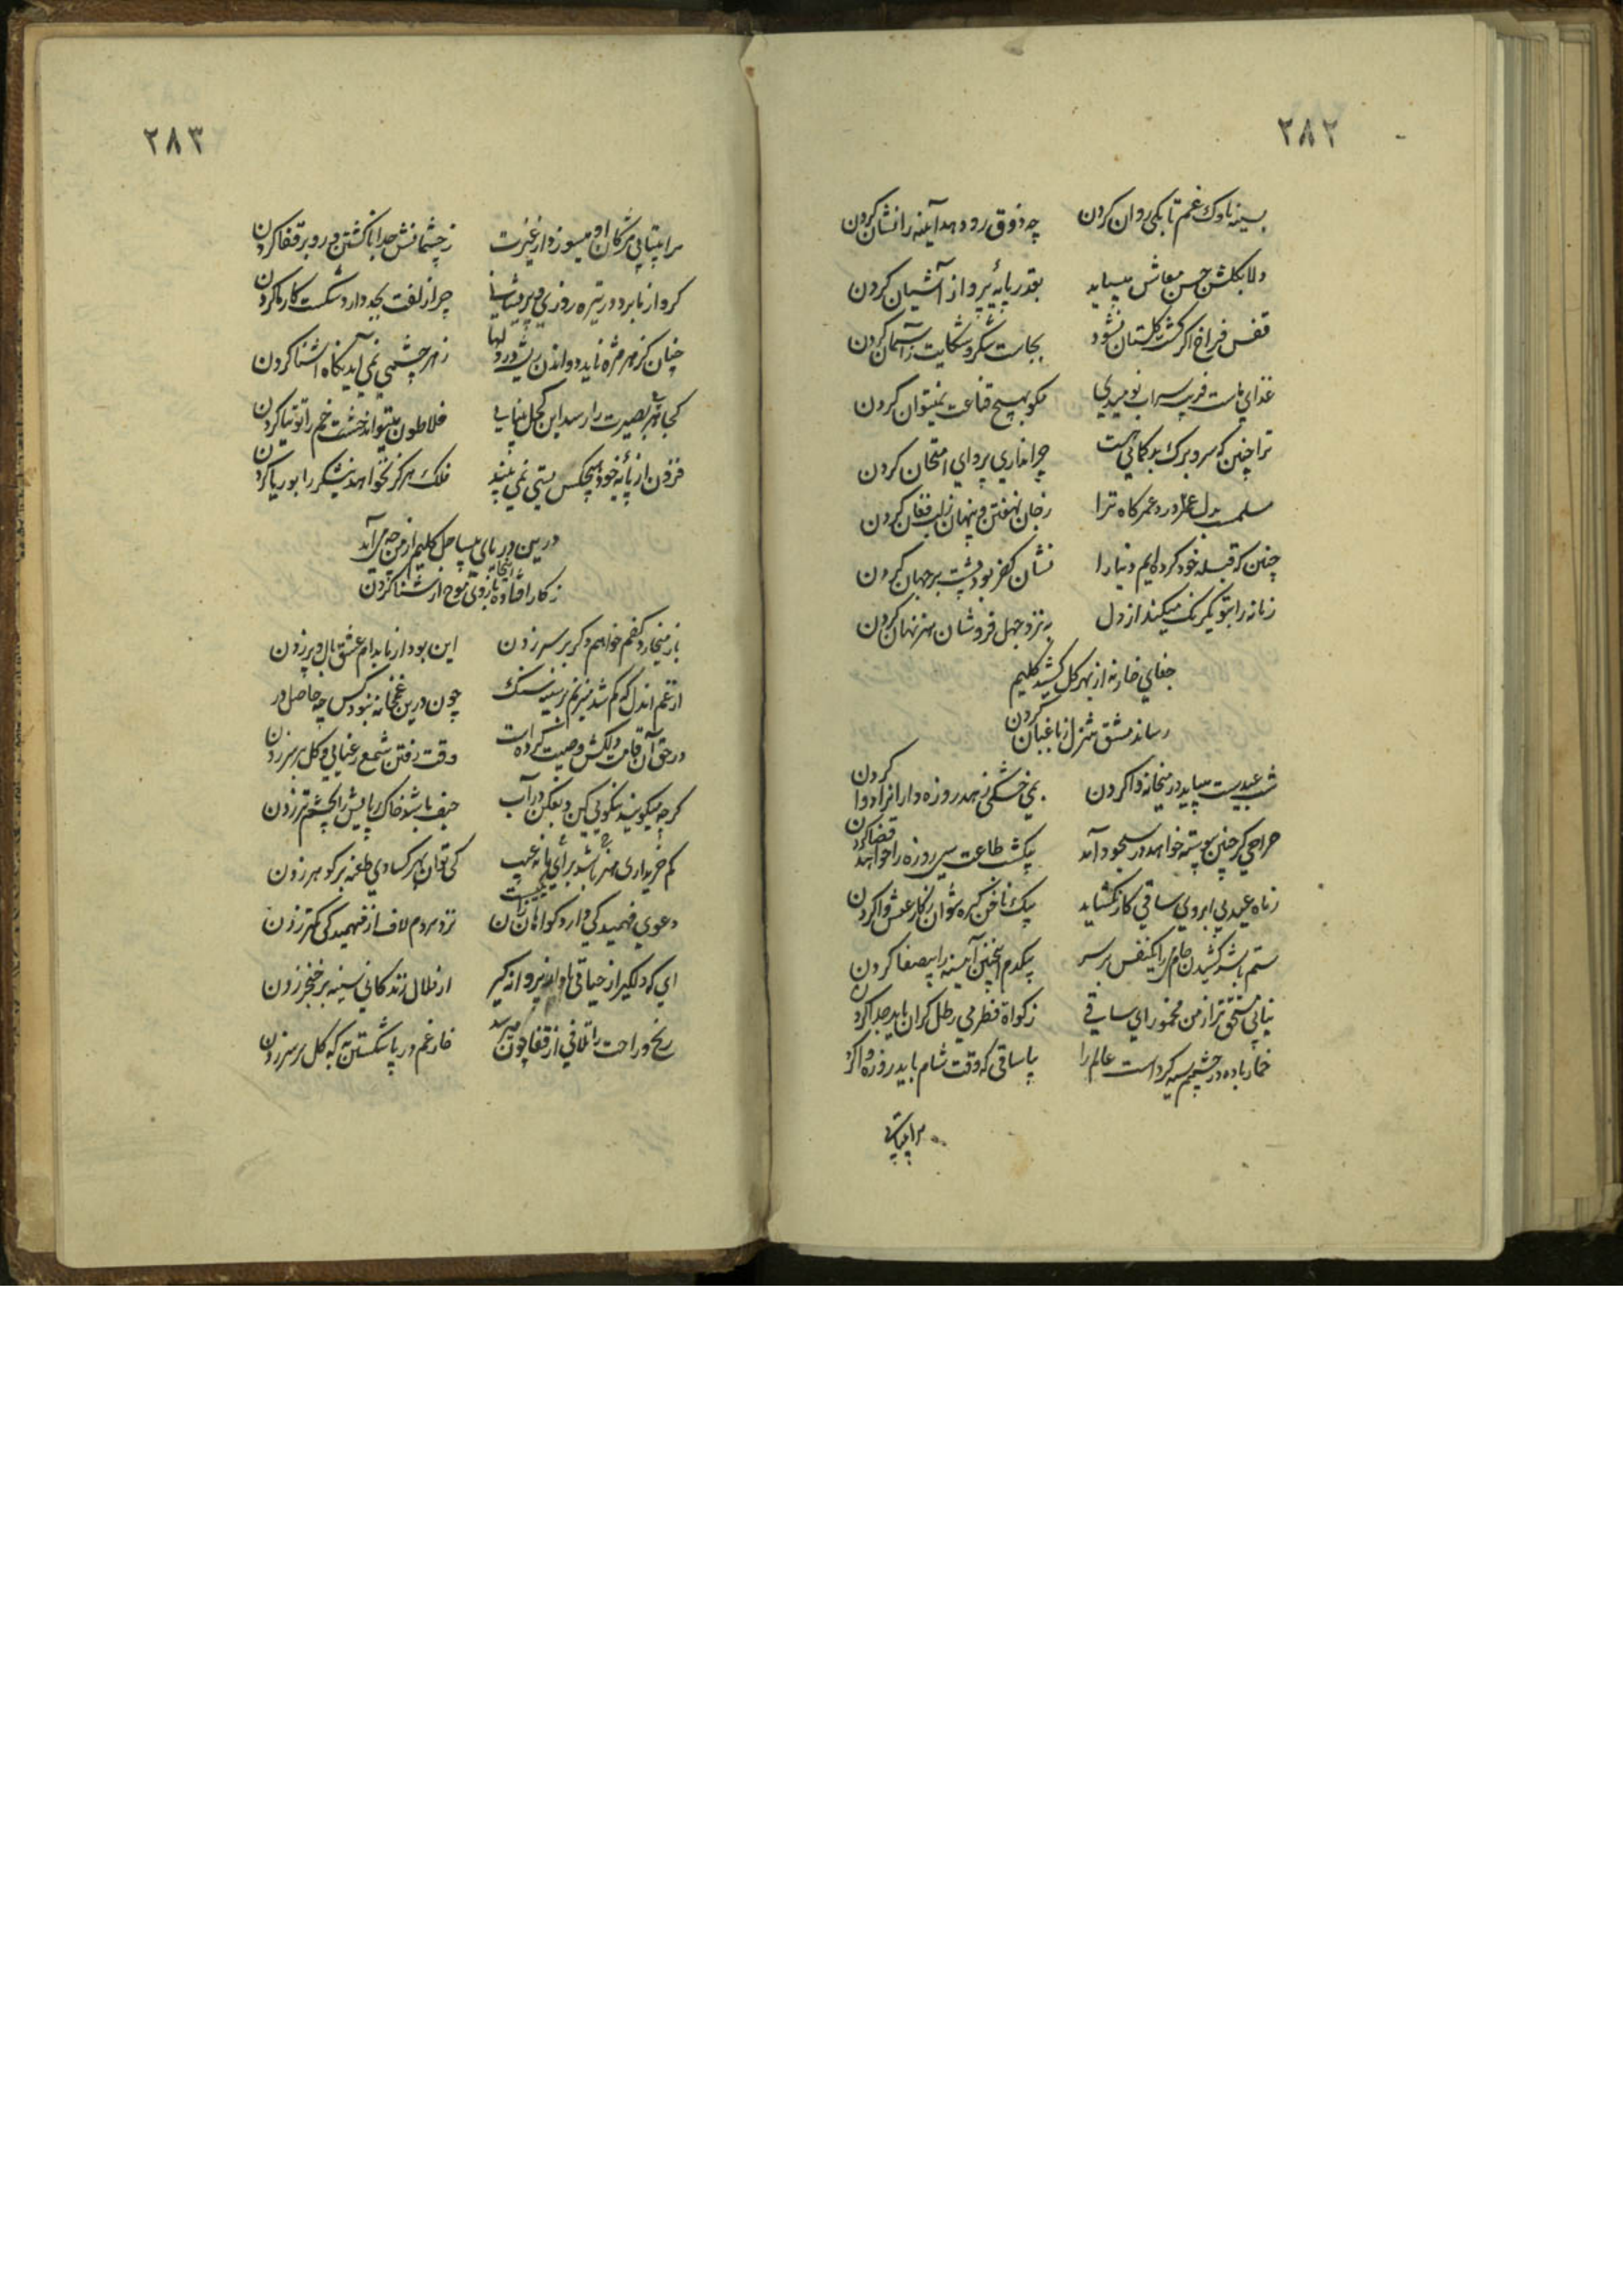 ۲۸۲
بسینه ناوک غم تا بکی روان کردن چه ذوق رو دهد آیینه را نشان کردن
دلا بگلشن حسن معاش میباید بقدر پایه پرواز آشیان کردن
قفس فراخ اگر گشت گلستان نشود بجاست شکر و شکایت ز آسمان کردن
غذای ماست فریب سراب نومیدی مگو بهیچ قناعت نمیتوان کردن
ترا چنین که سر و برک بدگمانی هست چرا نداری پروای امتحان کردن
ز جان نهفتن و پنهان ز لب فغان کردن
چنین که قبله خود کرده‌ایم دنیا را نشان کفر بود پشت بر جهان کردن
زمانه را بتو یکرنک میکند از دل به نزد جهل فروشان هنر نهان کردن
جفای خار نه از بهر گل کشید کلیم
رساند مشق تنزل بباغبان کردن
شب عیدست میباید در میخانه وا کردن بمی خشکی زهد روزه‌داران را دوا کردن
صراحی گر چنین پیوسته خواهد در سجود آمد بیکشب طاعت سی روزه را خواهد قضا کردن
ز ماه عید بی ابروی ساقی کار نگشاید بیک ناخن گره نتوان ز کار عیش وا کردن
ستم باشد کشیدن جام می را یکنفس بر سر بیکدم اینچنین آیینه را بیصفا کردن
نیابی مستحق‌تر از من مخمور ای ساقی زکواة فطر می رطل گران باید جدا کردن
خمار باده در چشمم سیه کرد است عالم را بیا ساقی که وقت شام باید روزه وا کردن
مرا بیتابی
۲۸۳
مرا بیتابی مژگان او میسوزد از غیرت ز چشمانش جدا ناگشتن و رو بر قفا کردن
گرو از ما برد در تیره‌روزی و پریشانی چرا زلفت بجد دارد شکست کار ما کردن
چنان کز هر مژه ناید دواندن ریشه در دلها ز هر چشمی نمی‌آید نگاه آشنا کردن
کجا بهر بصیرت را رسد این کحل بینایی فلاطون میتواند خشت خم را توتیا کردن
فزون از پایه خود هیچکس پستی نمی‌بیند فلک هرگز نخواهد نیشکر را بوریا کردن
درین دریای بیساحل کلیم از من چه می‌آید
ز کار افتاده اینجا بازوی موج از شنا کردن
باز میخارد کفم خواهم دگر بر سر زدن این بود از ما بدام عشق بال و پر زدن
از غم آندل که گم شد میزنم بر سینه سنک چون درین غمخانه نبود کس چه حاصل در
در حق آن قامت دلکش وصیت کرده است وقت رفتن شمع رعنایی و گل بر سر زدن
گرچه میگویند نیکویی کن و بفکن در آب حیف باشد خاک پایش را بچشم تر زدن
کم خریداری هنر باشد برای ما نه عیب کی توان بهر کسادی طعنه بر گوهر زدن
دعوی فهمیدگی دارد گواهان نزد مردم لاف از فهمیدگی کمتر زدن
ای که دلگیر از حیاتی یاد از پروانه گیر از ملال زندگانی سینه بر خنجر زدن
رنج و راحت را تلافی از قفا چون میرسد خار غم در پا شکستن به که گل بر سر زدن